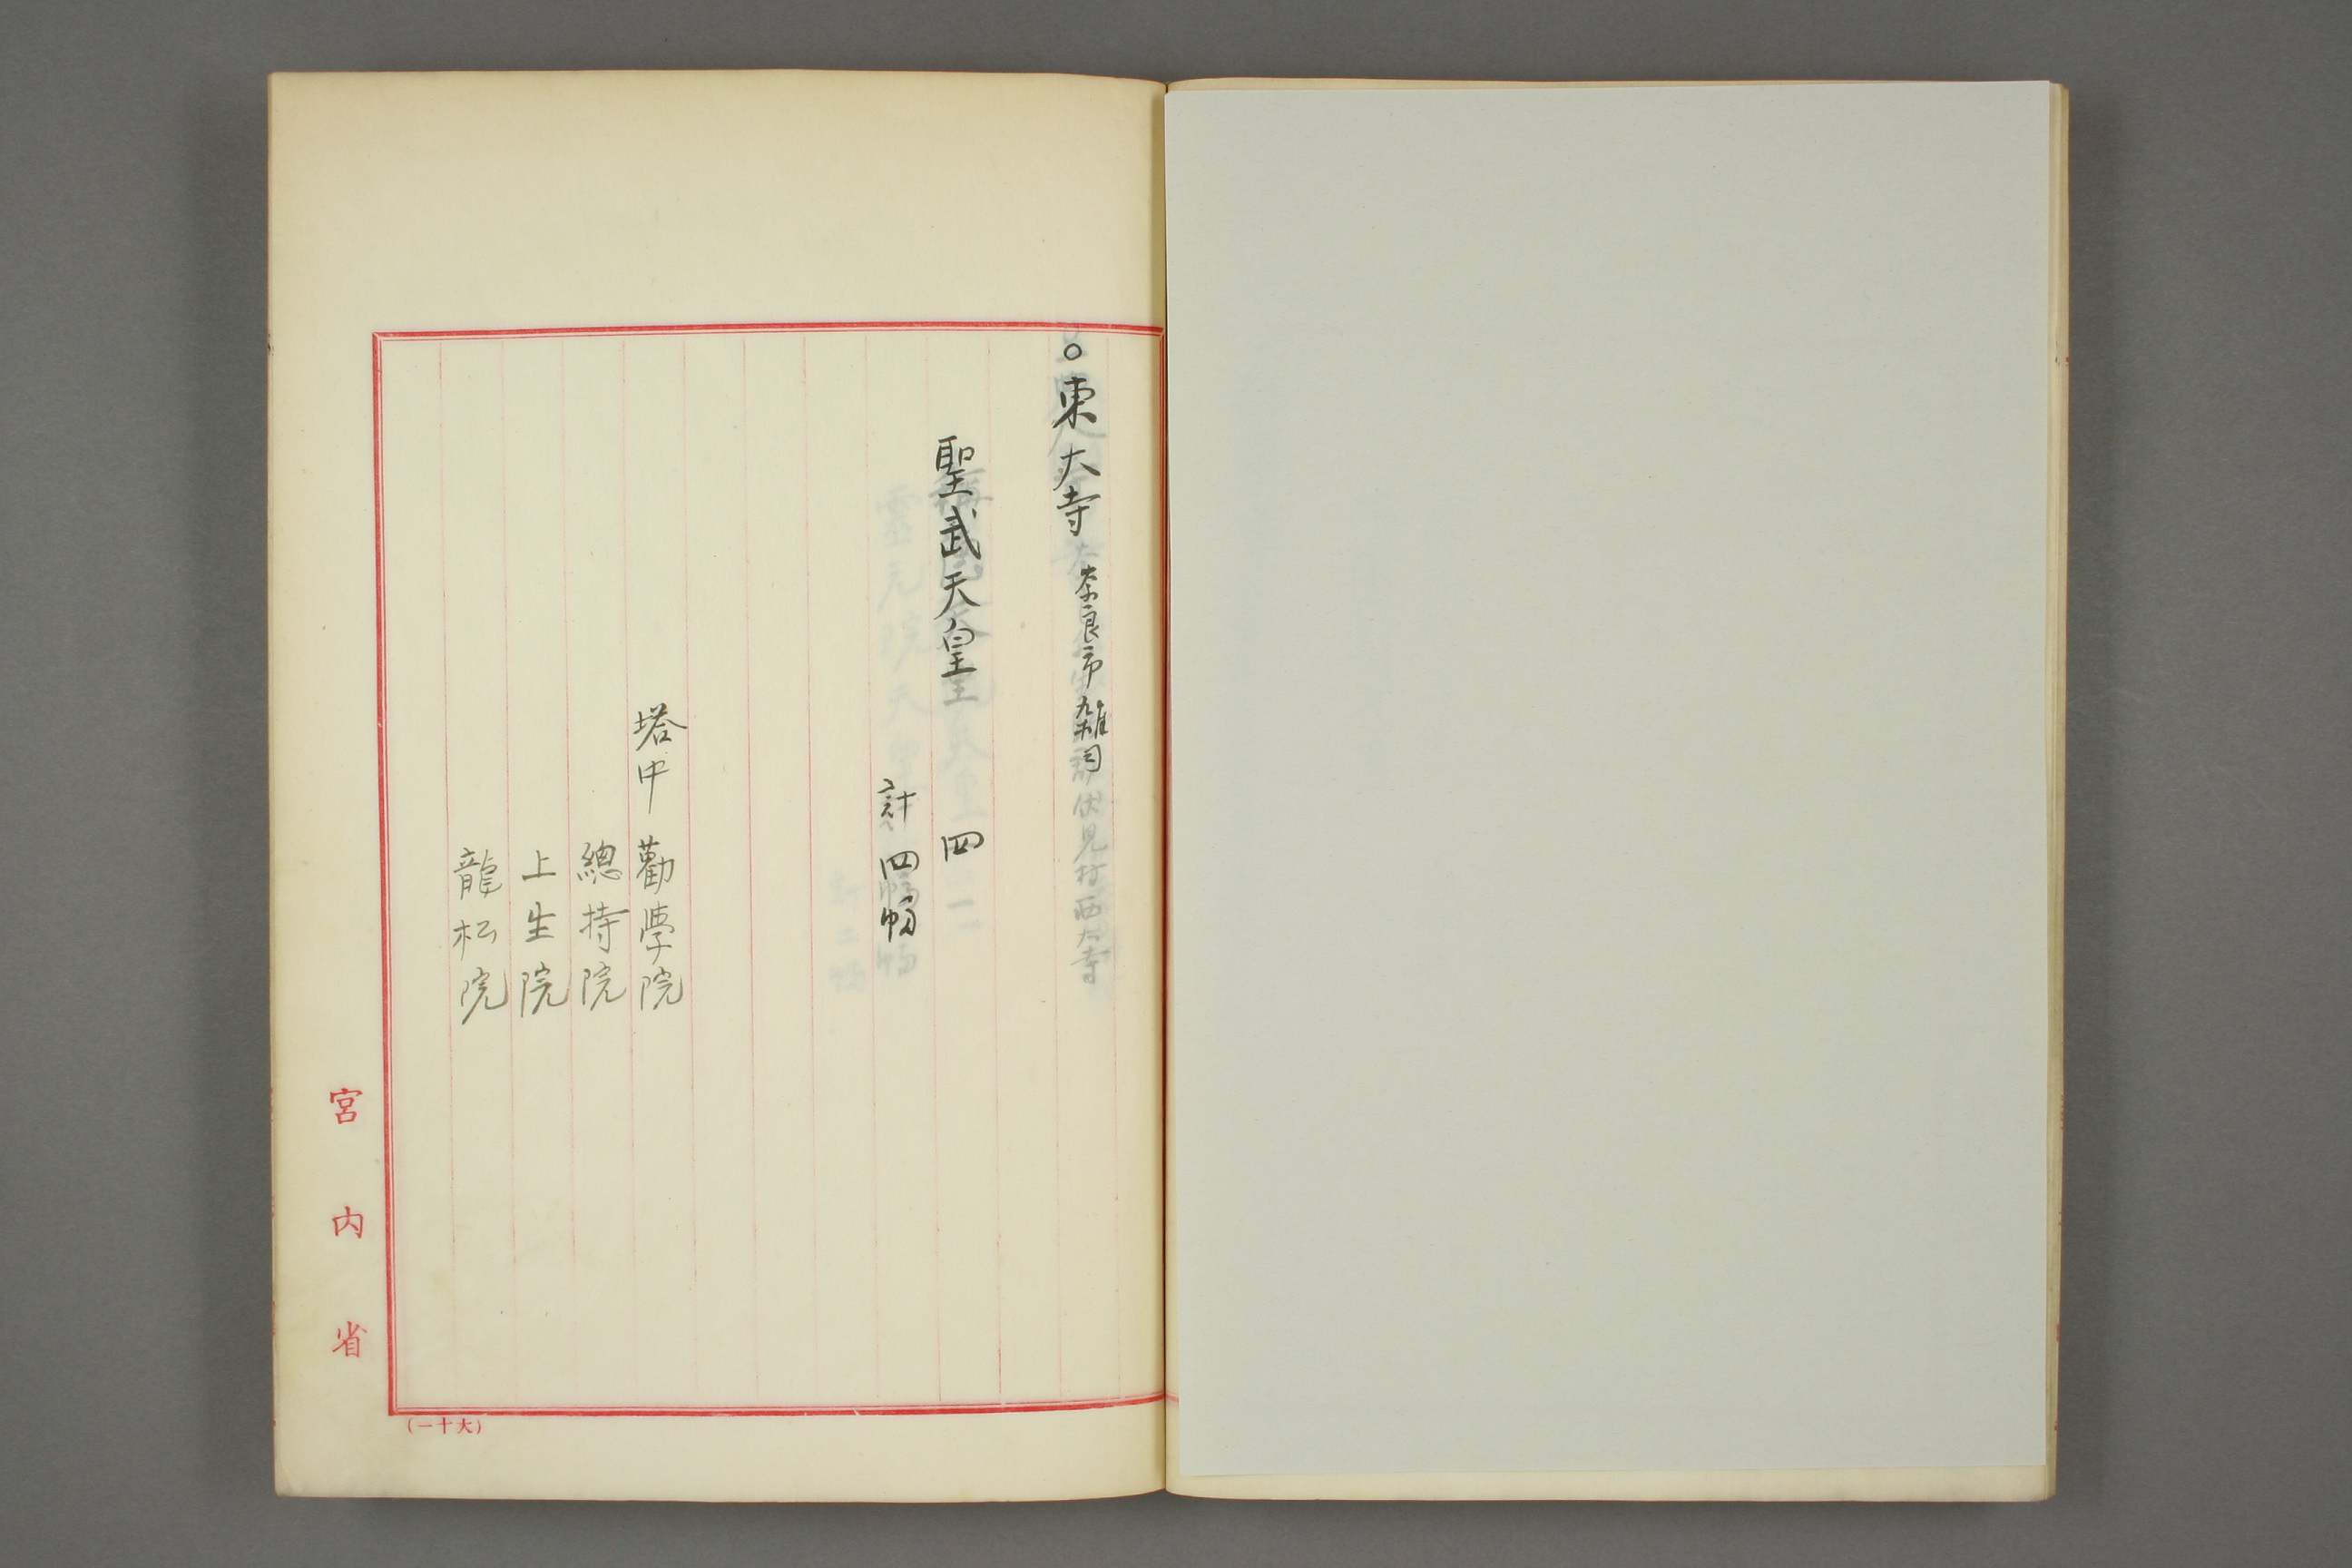 ○東大寺 奈良市雑司
聖武天皇 四
計 四幅
塔中 勸學院
總持院
上生院
龍松院
宮内省
(一十大)